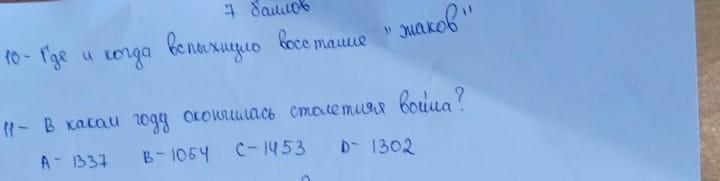 7 баллов
10- Где и когда вспыхнуло восстание "жаков"
11- В каком году окончилась столетняя война?
A- 1337 B- 1054 C- 1453 D- 1302